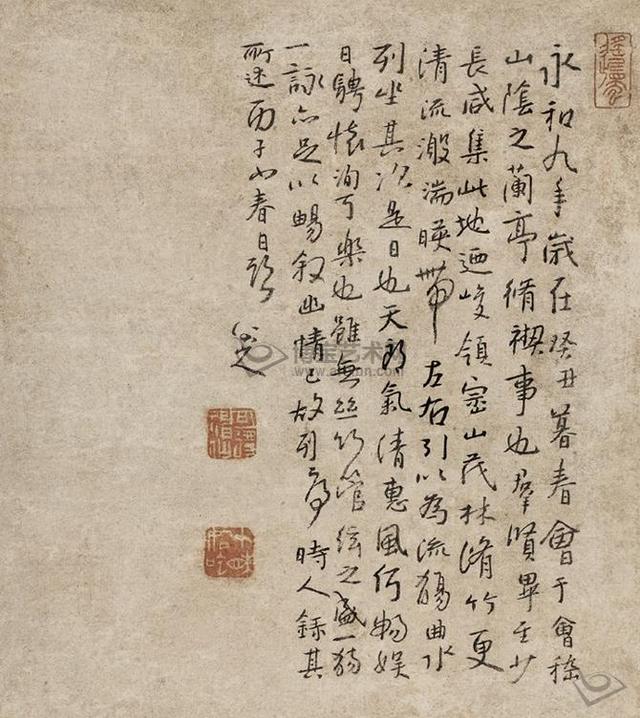 永和九年歲在癸丑暮春會于會稽
山陰之蘭亭脩禊事也羣賢畢至少
長咸集此地迺峻領崇山茂林脩竹更
清流激湍暎帶左右引以為流觴曲水
列坐其次是日也天朗氣清惠風何暢娛
目騁懷洵可樂也雖無絲竹管絃之盛一觴
一詠亦足以暢叙幽情已故列序時人錄其
所述丙子春日題
八大山人
博宝艺术网